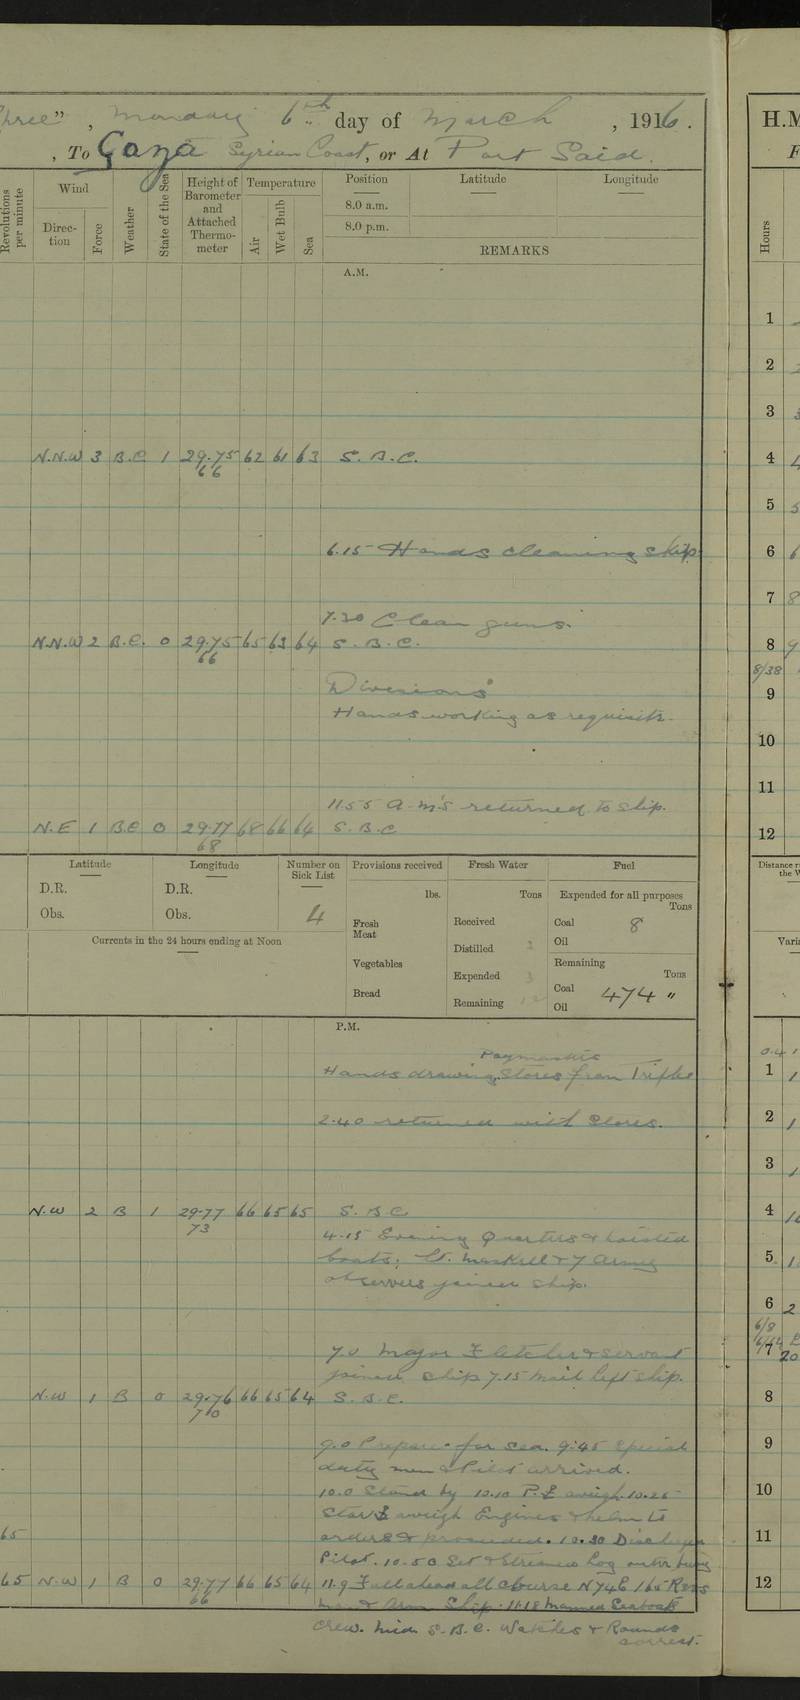 ", Monday 6th day of March, 1916.
, To Gaza Syrian Coast, or At Port Said.
Revolutions per minute
Wind
Direction
Force
Weather
State of the Sea
Height of Barometer and Attached Thermometer
Temperature
Air
Wet Bulb
Sea
Position
8.0 a.m.
8.0 p.m.
Latitude
Longitude
REMARKS
A.M.
N.N.W 3 B.C 1 29.75 62 61 63 S.B.C.
66
6.15 Hands cleaning ship
7.30 Clean guns.
N.N.W 2 B.C. 0 29.75 65 63 64 S.B.C.
66
Divisions
Hands working as requisite.
11.55 a.m's returned to ship.
N.E 1 B.C 0 29.77 68 66 64 S.B.C
68
Latitude
D.R.
Obs.
Longitude
D.R.
Obs.
Number on Sick List
4
Currents in the 24 hours ending at Noon
Provisions received
lbs.
Fresh Meat
Vegetables
Bread
Fresh Water
Tons
Received
Distilled
Expended 3
Remaining
Fuel
Expended for all purposes
Tons
Coal 8
Oil
Remaining
Tons
Coal 474 "
Oil
P.M.
Paymasters
Hands drawing Stores from
2.40 returned with stores.
N.W 2 B 1 29.77 66 65 65 S.B.C
73
4.15 Evening Quarters & hoisted
boats; Lt. Maskell & 7 Army
observers joined ship.
7.0 Major Fletcher & servant
joined ship 7.15 mail left ship.
N.W 1 B 0 29.76 66 65 64 S.B.C.
70
9.0 Prepare for sea. 9.45 Special
duty men & Pilot arrived.
10.0 Stand by 10.10 P. aweigh. 10.25
Star aweigh Engines & helm to
65
orders & proceeded. 10.30 Discharged
Pilot. 10.50 Set & Streamed Log outer buoy
65 N.W 1 B 0 29.77 66 65 64 11.9 Full ahead all Course N74E 165 Revs
66
Arm Ship. 11.18 Manned Seaboats
crew. Mid. S.B.C. Watches & Rounds
correct.
H.M
F
Hours
1
2
3
4
5
6
7
8
8/38
9
10
11
12
1
2
3
4
5
6
7
8
9
10
11
12